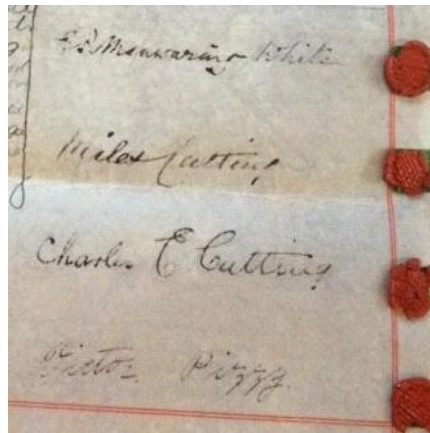 Manwaring White
Miles Cutting
Charles E. Cutting
Victor Pizzy.